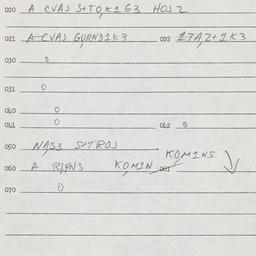 020 A CVAJ S+TO,K1G3 HOJ2
021 A CVAJ GURND1K3 022 17A,2+1K3
030 0
031 0
040 0
041 0 042 0
050 NAS3 S+TROJ
KOM1NS
060 A KOM1N 061
070 0